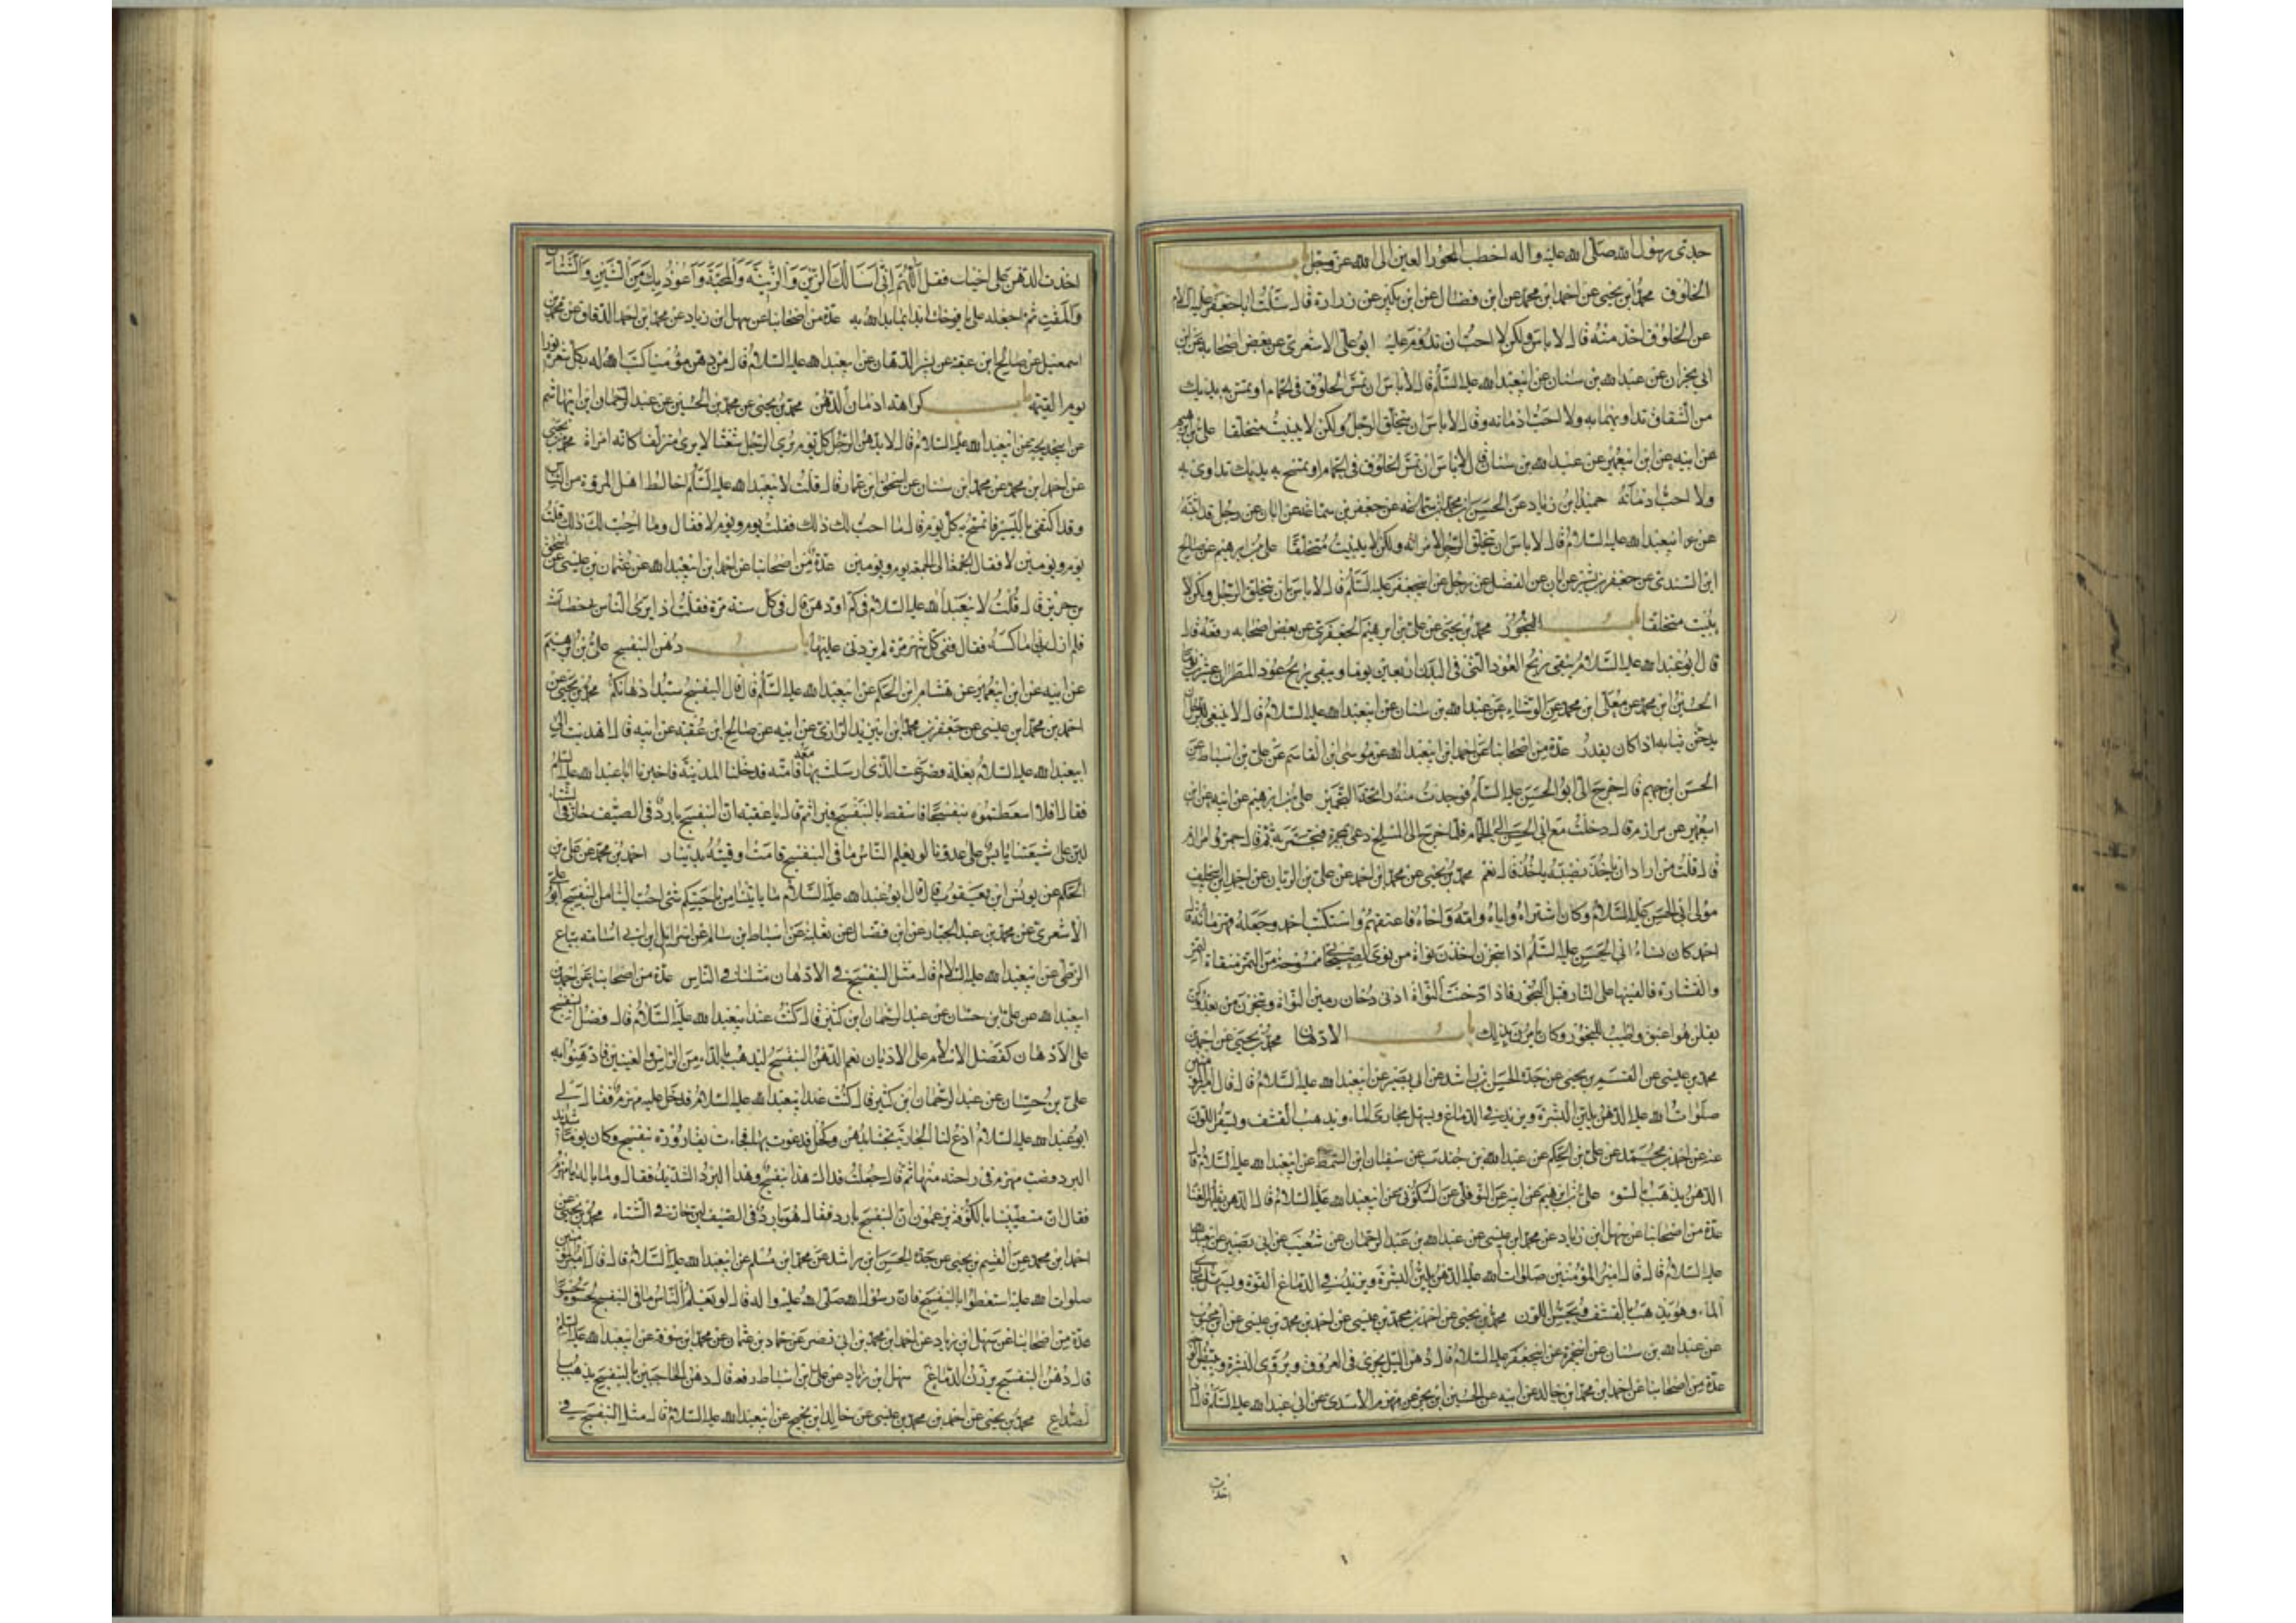 جدي رسول الله صلى الله عليه واله اخطب الحور العين الى الله عز وجل باب
الخلوق محمد ابن يحيى عن احمد ابن محمد عن ابن فضال عن ابن بكير عن زرارة قال سئلت ابا جعفر عليه السلام
عن الخلوق اخذ منه قال لا باس ولكن لا احب ان تدوم عليه ابو علي الاشعري عن بعض اصحابه عن ابن
ابي نجران عن عبد الله بن سنان عن ابيعبد الله عليه السلم قال لا باس ان تمس الخلوق في الحمام او تمس به يديك
من الشقاق تداويهما به ولا احب ادمانه وقال لا باس ان يتخلق الرجل ولكن لا يبيت متخلقا علي بن ابرهيم
عن ابيه عن ابن ابيعمير عن عبد الله بن سنان قال لا باس ان تمس الخلوق في الحمام او تمسح به يديك تداوى به
ولا احب ادمانه حميد ابن زياد عن الحسن ابن محمد ابن سماعة عن جعفر بن سماعة عن ابان عن رجل قد اثبته
عن ابيعبد الله عليه السلام قال لا باس ان يتخلق الرجل لامراته ولكن لا يبيت متخلقا علي بن ابرهيم عن صالح
ابن السندي عن جعفر بن بشير عن ابان عن الفضل عن رجل عن ابيجعفر عليه السلم قال لا باس بان يتخلق الرجل ولكن لا
يبيت متخلقا باب البخور محمد بن يحيى عن علي بن ابرهيم الجعفري عن بعض اصحابه رفعه قال
قال ابو عبد الله عليه السلام يبقى ريح العود الني في البدن اربعين يوما ويبقى ريح عود المطرا عشرين يوما
الحسين ابن محمد عن معلى ابن محمد عن الوشاء عن عبد الله بن سنان عن ابيعبد الله عليه السلام قال لا ينبغي للرجل ان
يدخن ثيابه اذا كان يقدر عدة من اصحابنا عن احمد ابن ابيعبد الله عن موسى ابن القاسم عن علي بن اسباط عن
الحسن ابن جهم قال خرج الي ابو الحسن عليه السلم فوجدت منه رائحة التجمير علي بن ابرهيم عن ابيه عن ابن
ابيعمير عن مرازم قال دخلت مع ابي الحسن الى الحمام فلما خرج الى المسلخ دعى بمجمرة فتجمر به ثم قال جمروا مرازم
قال قلت من اراد ان ياخذ نصيبه ياخذ قال نعم محمد بن يحيى عن محمد ابن احمد عن علي بن الريان عن احمد ابن ابي خلف
مولى ابي الحسن عليه السلام وكان اشتراه واباه وامه واخاه فاعتقهم واستكتب احمد وجعله قهرمانه فقال
احمد كان نساء ابي الحسن عليه السلم اذا تبخرن اخذن نواة من نوى الصيحاني ممسوحة من التمر منقاة التمر
والقشارة فالقينها على النار قبل البخور فاذا دخنت النواة ادنى دخان رمين النواة وتبخرن من بعد وكن
يقلن هو اعبق واطيب للبخور وكان يامرن بذلك باب الادهان محمد بن يحيى عن احمد ابن
محمد بن عيسى عن القسم بن يحيى عن جده الحسن بن راشد عن ابي بصير عن ابيعبد الله عليه السلام قال قال امير المؤمنين
صلوات الله عليه الدهن يلين البشرة ويزيد في الدماغ ويسهل مجاري الماء ويذهب القشف ويسفر اللون
عنه عن احمد بن محمد عن علي بن الحكم عن عبد الله بن جندب عن سفيان ابن السمط عن ابيعبد الله عليه السلام قال
الدهن يذهب بالسوء علي بن ابرهيم عن ابيه عن النوفلي عن السكوني عن ابيعبد الله عليه السلام قال الدهن يظهر الغنا
عدة من اصحابنا عن سهل ابن زياد عن محمد ابن عيسى عن عبد الله بن عبد الرحمان عن شعيب عن ابي بصير عن ابيعبد الله
عليه السلام قال قال امير المؤمنين صلوات الله عليه الدهن يلين البشرة ويزيد في الدماغ القوة ويسهل مجاري
الماء وهو يذهب بالقشف ويحسن اللون محمد بن يحيى عن احمد بن محمد بن عيسى عن احمد بن محمد بن عيسى عن ابن محبوب
عن عبد الله بن سنان عن ابيحمزة عن ابيجعفر عليه السلام قال دهن الليل يجري في العروق ويروي البشرة ويبيض الوجه
عدة من اصحابنا عن احمد ابن محمد ابن خالد عن ابيه عن الحسين ابن بحر عن مهزم الاسدي عن ابي عبد الله عليه السلم قال اذا
اخذت
اخذت الدهن على اخيات فقل اللهم اني اسالك الزين والزينة والمحبة واعوذ بك من الشين والشنان
والمقت ثم اجعله على يافوخك ابدا بما بدا الله به عدة من اصحابنا عن سهل ابن زياد عن محمد ابن احمد الدقاق عن محمد بن
اسمعيل عن صالح ابن عقبة عن بشير الدهان عن ابيعبد الله عليه السلام قال من دهن مؤمنا كتب الله له بكل شعرة نورا
يوم القيمة باب كراهة ادمان الدهن محمد بن يحيى عن محمد بن الحسين عن عبد الرحمان ابن ابيهاشم
عن ابيخديجة عن ابيعبد الله عليه السلام قال لا يدهن الرجل كل يوم يرى الرجل شعثا لا يرى متزلقا كانه امراة محمد بن يحيى
عن احمد ابن محمد عن محمد ابن سنان عن اسحق ابن عمار قال قلت لابيعبد الله عليه السلم اخالط اهل المروة من الناس
وقد اكتفي باليسير فاتمسح به كل يوم قال ما احب لك ذلك فقلت يوم ويوم لا فقال وما احب لك ذلك قلت
يوم ويومين لا فقال الجمعة الى الجمعة يوم ويومين عدة من اصحابنا عن احمد ابن ابيعبد الله عن عثمان بن عيسى عن اسحق
بن جرير قال قلت لابيعبد الله عليه السلام في كم ادهن قال في كل سنة مرة فقلت اذا يرى الناس بي خصاصة
فلم ازل اماكسه فقال ففي كل شهر مرة لم يزدني عليها باب دهن البنفسج علي بن ابرهيم
عن ابيه عن ابن ابيعمير عن هشام ابن الحكم عن ابيعبد الله عليه السلم قال قال البنفسج سيد ادهانكم محمد بن يحيى عن
احمد بن محمد ابن عيسى عن جعفر بن محمد ابن ابي زيد الرازي عن ابيه عن صالح ابن عقبة عن ابيه قال اهديت الى
ابيعبد الله عليه السلام بغلة فصرعت الذي ارسلت بها معه فامته فدخلنا المدينة فاخبرنا ابا عبد الله عليه السلم
فقال افلا اسعطتموه بنفسجا فاسقط بالبنفسج فبرا ثم قال يا عقبة ان البنفسج بارد في الصيف حار في الشتاء
لين على شيعتنا يابس على عدونا لو يعلم الناس ما في البنفسج قامت اوقيته بدينار احمد بن محمد عن علي بن
الحكم عن يونس ابن يعقوب قال قال ابو عبد الله عليه السلام ما ياتينا من ناحيتكم شي احب الينا من البنفسج ابو علي
الاشعري عن محمد بن عبد الجبار عن ابن فضال عن ثعلبة عن اسباط ابن سالم عن اسرائيل ابن ابي اسامة بياع
الزطي عن ابيعبد الله عليه السلام قال مثل البنفسج في الادهان مثلنا في الناس عدة من اصحابنا عن احمد بن
ابيعبد الله عن علي بن حسان عن عبد الرحمان ابن كثير قال كنت عند ابيعبد الله عليه السلام قال فضل البنفسج
على الادهان كفضل الاسلام على الاديان نعم الدهن البنفسج ليذهب بالداء من الراس والعينين فادهنوا به
علي بن حسان عن عبد الرحمان ابن كثير قال كنت عند ابيعبد الله عليه السلام فدخل عليه مهزم فقال لي
ابو عبد الله عليه السلام ادع لنا الجارية تجئنا بدهن وكحل فدعوت بها فجاءت بقارورة بنفسج وكان يوما شديد
البرد فصب مهزم في راحته منها ثم قال جعلت فداك هذا بنفسج وهذا البرد الشديد فقال وما باله يا مهزم
فقال ان متطببينا بالكوفة يزعمون ان البنفسج بارد فقال هو بارد في الصيف لين حار في الشتاء محمد بن يحيى عن
احمد ابن محمد عن القسم بن يحيى عن جده الحسن ابن راشد عن محمد ابن مسلم عن ابيعبد الله عليه السلام قال قال امير المؤمنين
صلوات الله عليه استعطوا بالبنفسج فان رسول الله صلى الله عليه واله قال لو يعلم الناس ما في البنفسج لحسوه حسوا
عدة من اصحابنا عن سهل ابن زياد عن احمد ابن محمد بن ابي نصر عن حماد بن عثمان عن محمد ابن سوقة عن ابيعبد الله عليه السلم
قال دهن البنفسج يرزن الدماغ سهل ابن زياد عن علي ابن اسباط رفعه قال دهن الحاجبين بالبنفسج يذهب
الصداع محمد بن يحيى عن احمد ابن محمد بن عيسى عن خالد ابن نجيح عن ابيعبد الله عليه السلام قال مثل البنفسج في